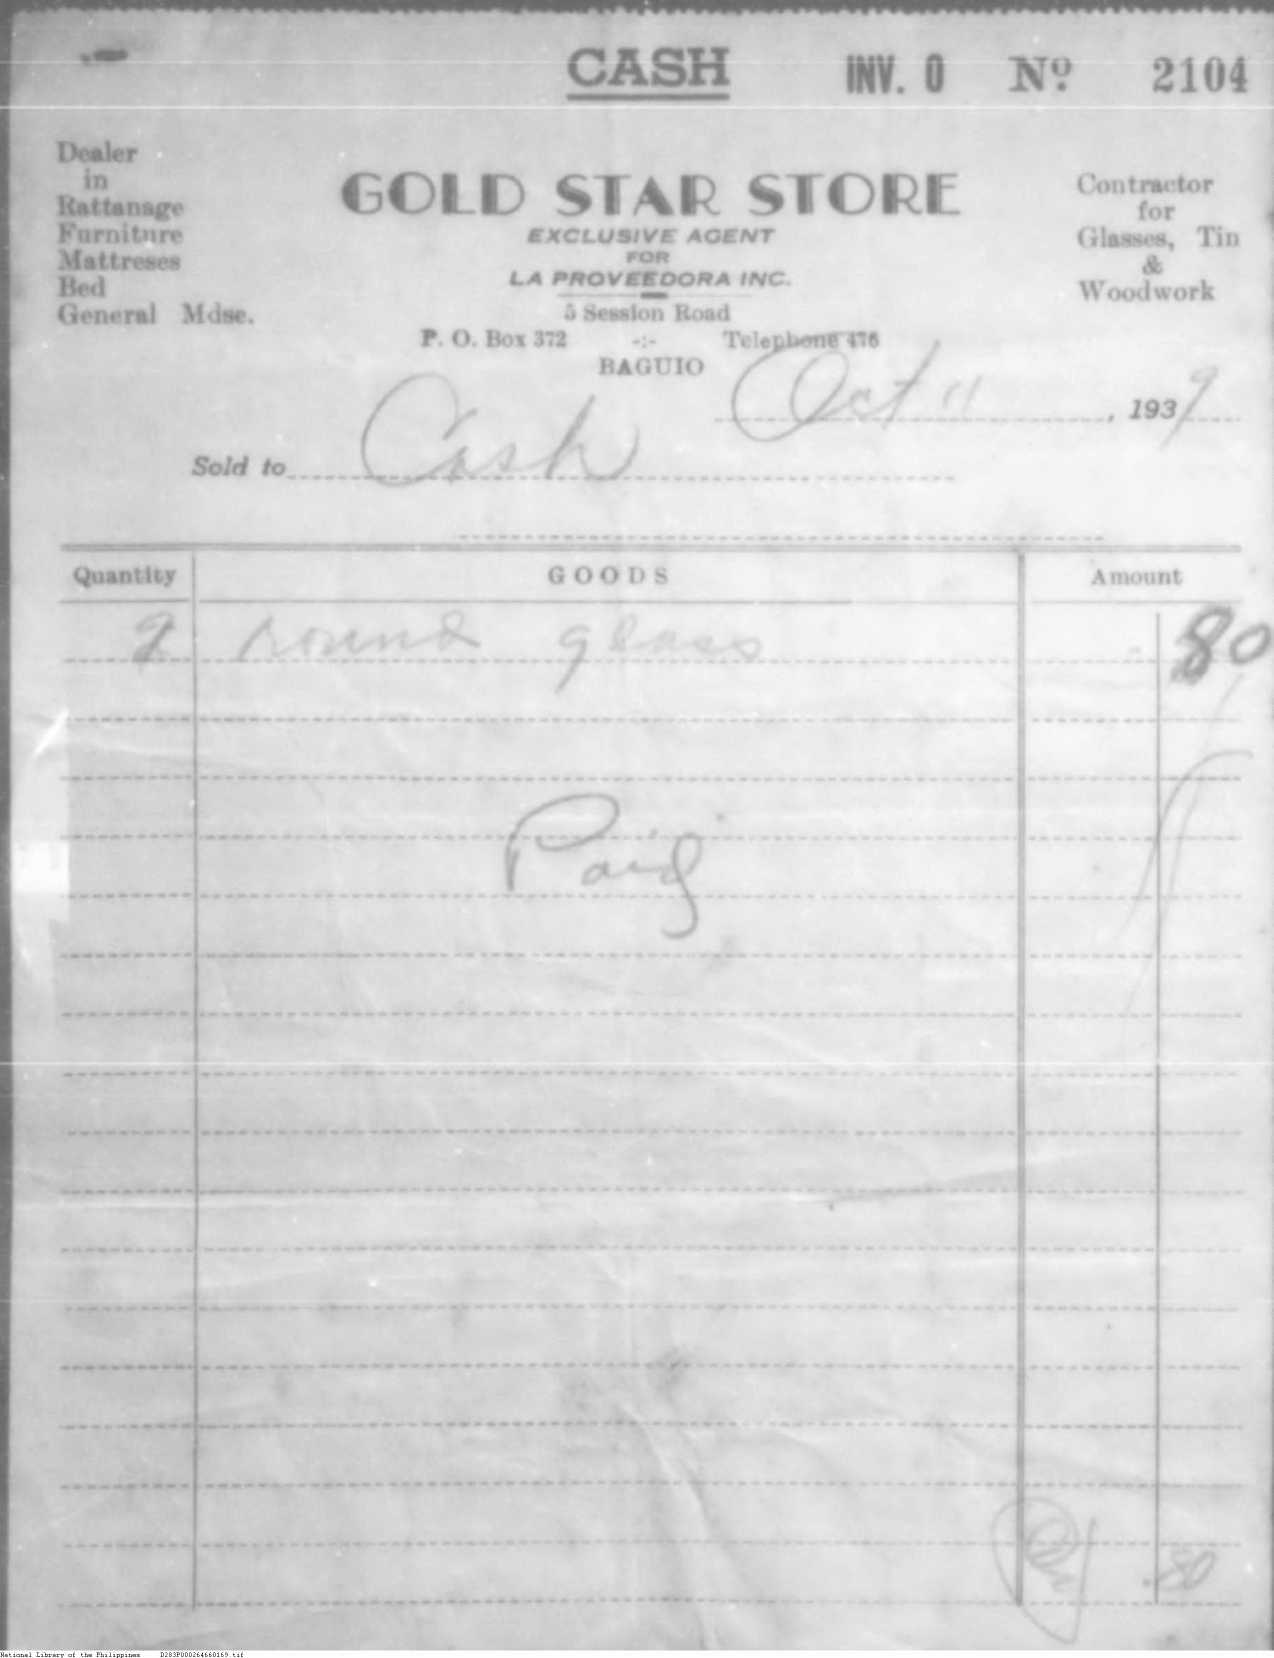 CASH INV. O Nº 2104
Dealer
in
Rattanage
Furniture
Mattreses
Bed
General Mdse.
GOLD STAR STORE
EXCLUSIVE AGENT
FOR
LA PROVEEDORA INC.
5 Session Road
P. O. Box 372 -:- Telephone 476
BAGUIO
Contractor
for
Glasses, Tin
&
Woodwork
Oct 11, 1939
Sold to Cash
Quantity GOODS Amount
2 round glass 80
Paid
.80
National Library of the Philippines D283P000264660169.tif